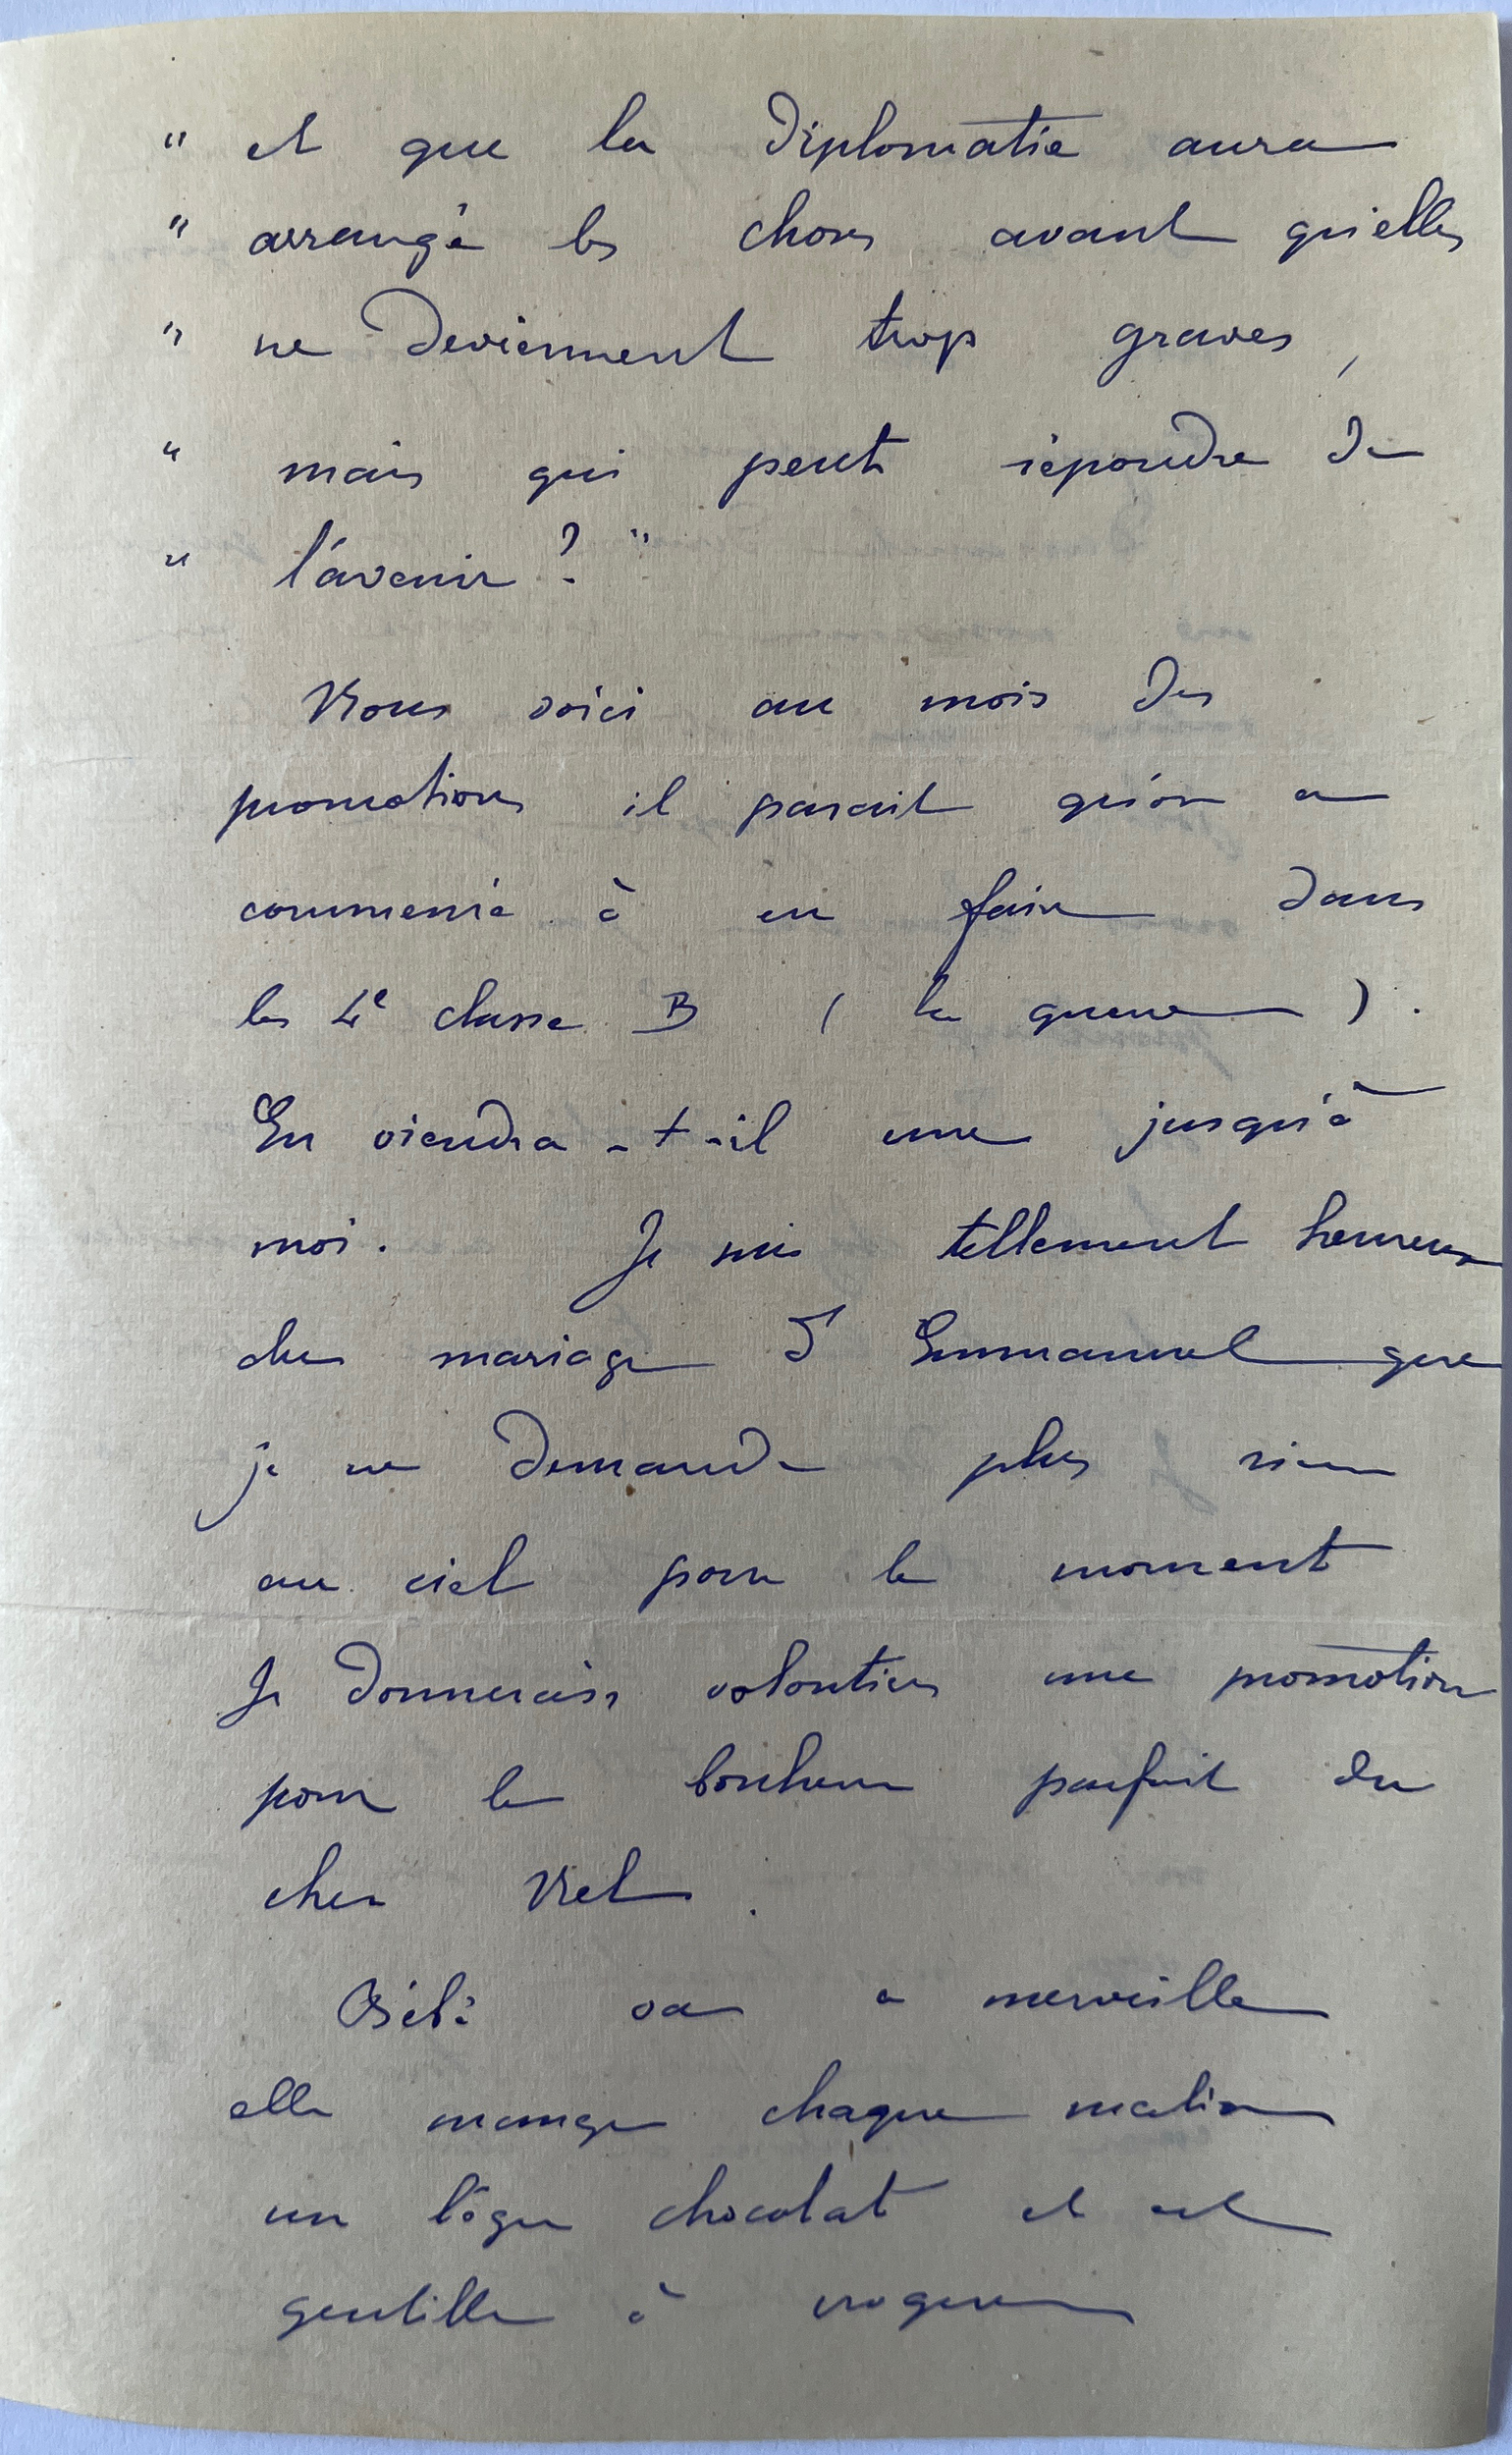 " et que la Diplomatie aura
" arrangé les choses avant qu'elles
" ne Deviennent trop graves,
" mais qui peut répondre de
" l'avenir ? "
Nous voici au mois des
promotions il parait qu'on a
commencé à en faire dans
les 4e classe B ( la queue ).
En viendra-t-il une jusqu'à
moi. Je suis tellement heureux
du mariage d'Emmanuel que
je ne demande plus rien
au ciel pour le moment
Je donnerais volontiers une promotion
pour le bonheur parfait du
cher Viel.
Bébé va a merveille
elle mange chaque matin
un léger chocolat et est
gentille à croquer